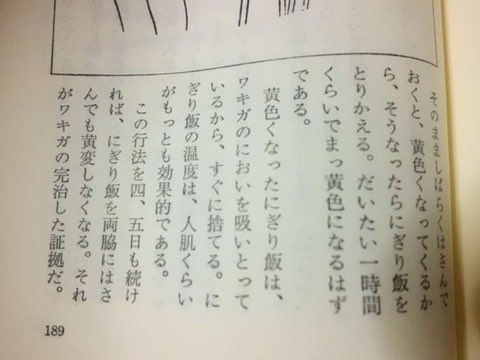 そのまましばらくはさんで
おくと、黄色くなってくるか
ら、そうなったらにぎり飯を
とりかえる。だいたい一時間
くらいでまっ黄色になるはず
である。
黄色くなったにぎり飯は、
ワキガのにおいを吸いとって
いるから、すぐに捨てる。に
ぎり飯の温度は、人肌くらい
がもっとも効果的である。
この行法を四、五日も続け
れば、にぎり飯を両脇にはさ
んでも黄変しなくなる。それ
がワキガの完治した証拠だ。
189